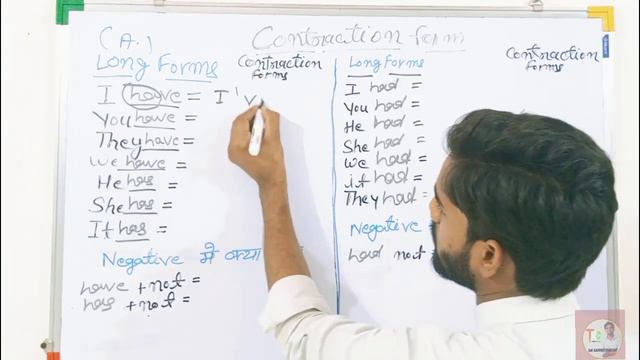 (A.) Contraction form
Long Forms
Contraction
forms
I have = I'v
You have =
They have =
We have =
He has =
She has =
It has =
Negative में क्या
have + not =
has + not =
Long Forms
Contraction
forms
I had =
You had =
He had =
She had =
We had =
it had =
They had =
Negative
had not =